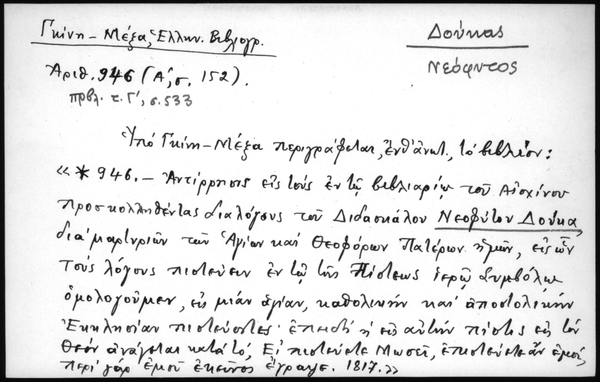 Γκίνη - Μέξα, Ἑλλην. Βιβλιογρ.
Δούκας
Νεόφυτος
Ἀριθ. 946 (Α', σ. 152).
πρβλ. τ. Γ', σ. 533
Ὑπό Γκίνη - Μέξα περιγράφεται, ἐνθ' ἀνωτ., τό βιβλίον:
«* 946. - Ἀντίρρησις εἰς τούς ἐν τῷ βιβλιαρίῳ τοῦ Αἰσχίνου
προσκολληθέντας διαλόγους τοῦ Διδασκάλου Νεοφύτου Δούκα,
διά μαρτυριῶν τῶν Ἁγίων καί Θεοφόρων Πατέρων ἡμῶν, εἰς ὧν
τούς λόγους πιστεύειν ἐν τῷ τῆς Πίστεως ἱερῷ Συμβόλῳ
ὁμολογοῦμεν, εἰς μίαν ἁγίαν, καθολικήν καί ἀποστολικήν
Ἐκκλησίαν πιστεύοντες· ἐπειδή ἡ εἰς αὐτήν πίστις εἰς τόν
Θεόν ἀνάγεται κατά τό, Εἰ πιστεύετε Μωσεῖ, ἐπιστεύετε ἄν ἐμοί,
περί γάρ ἐμοῦ ἐκεῖνος ἔγραψε. 1817.»